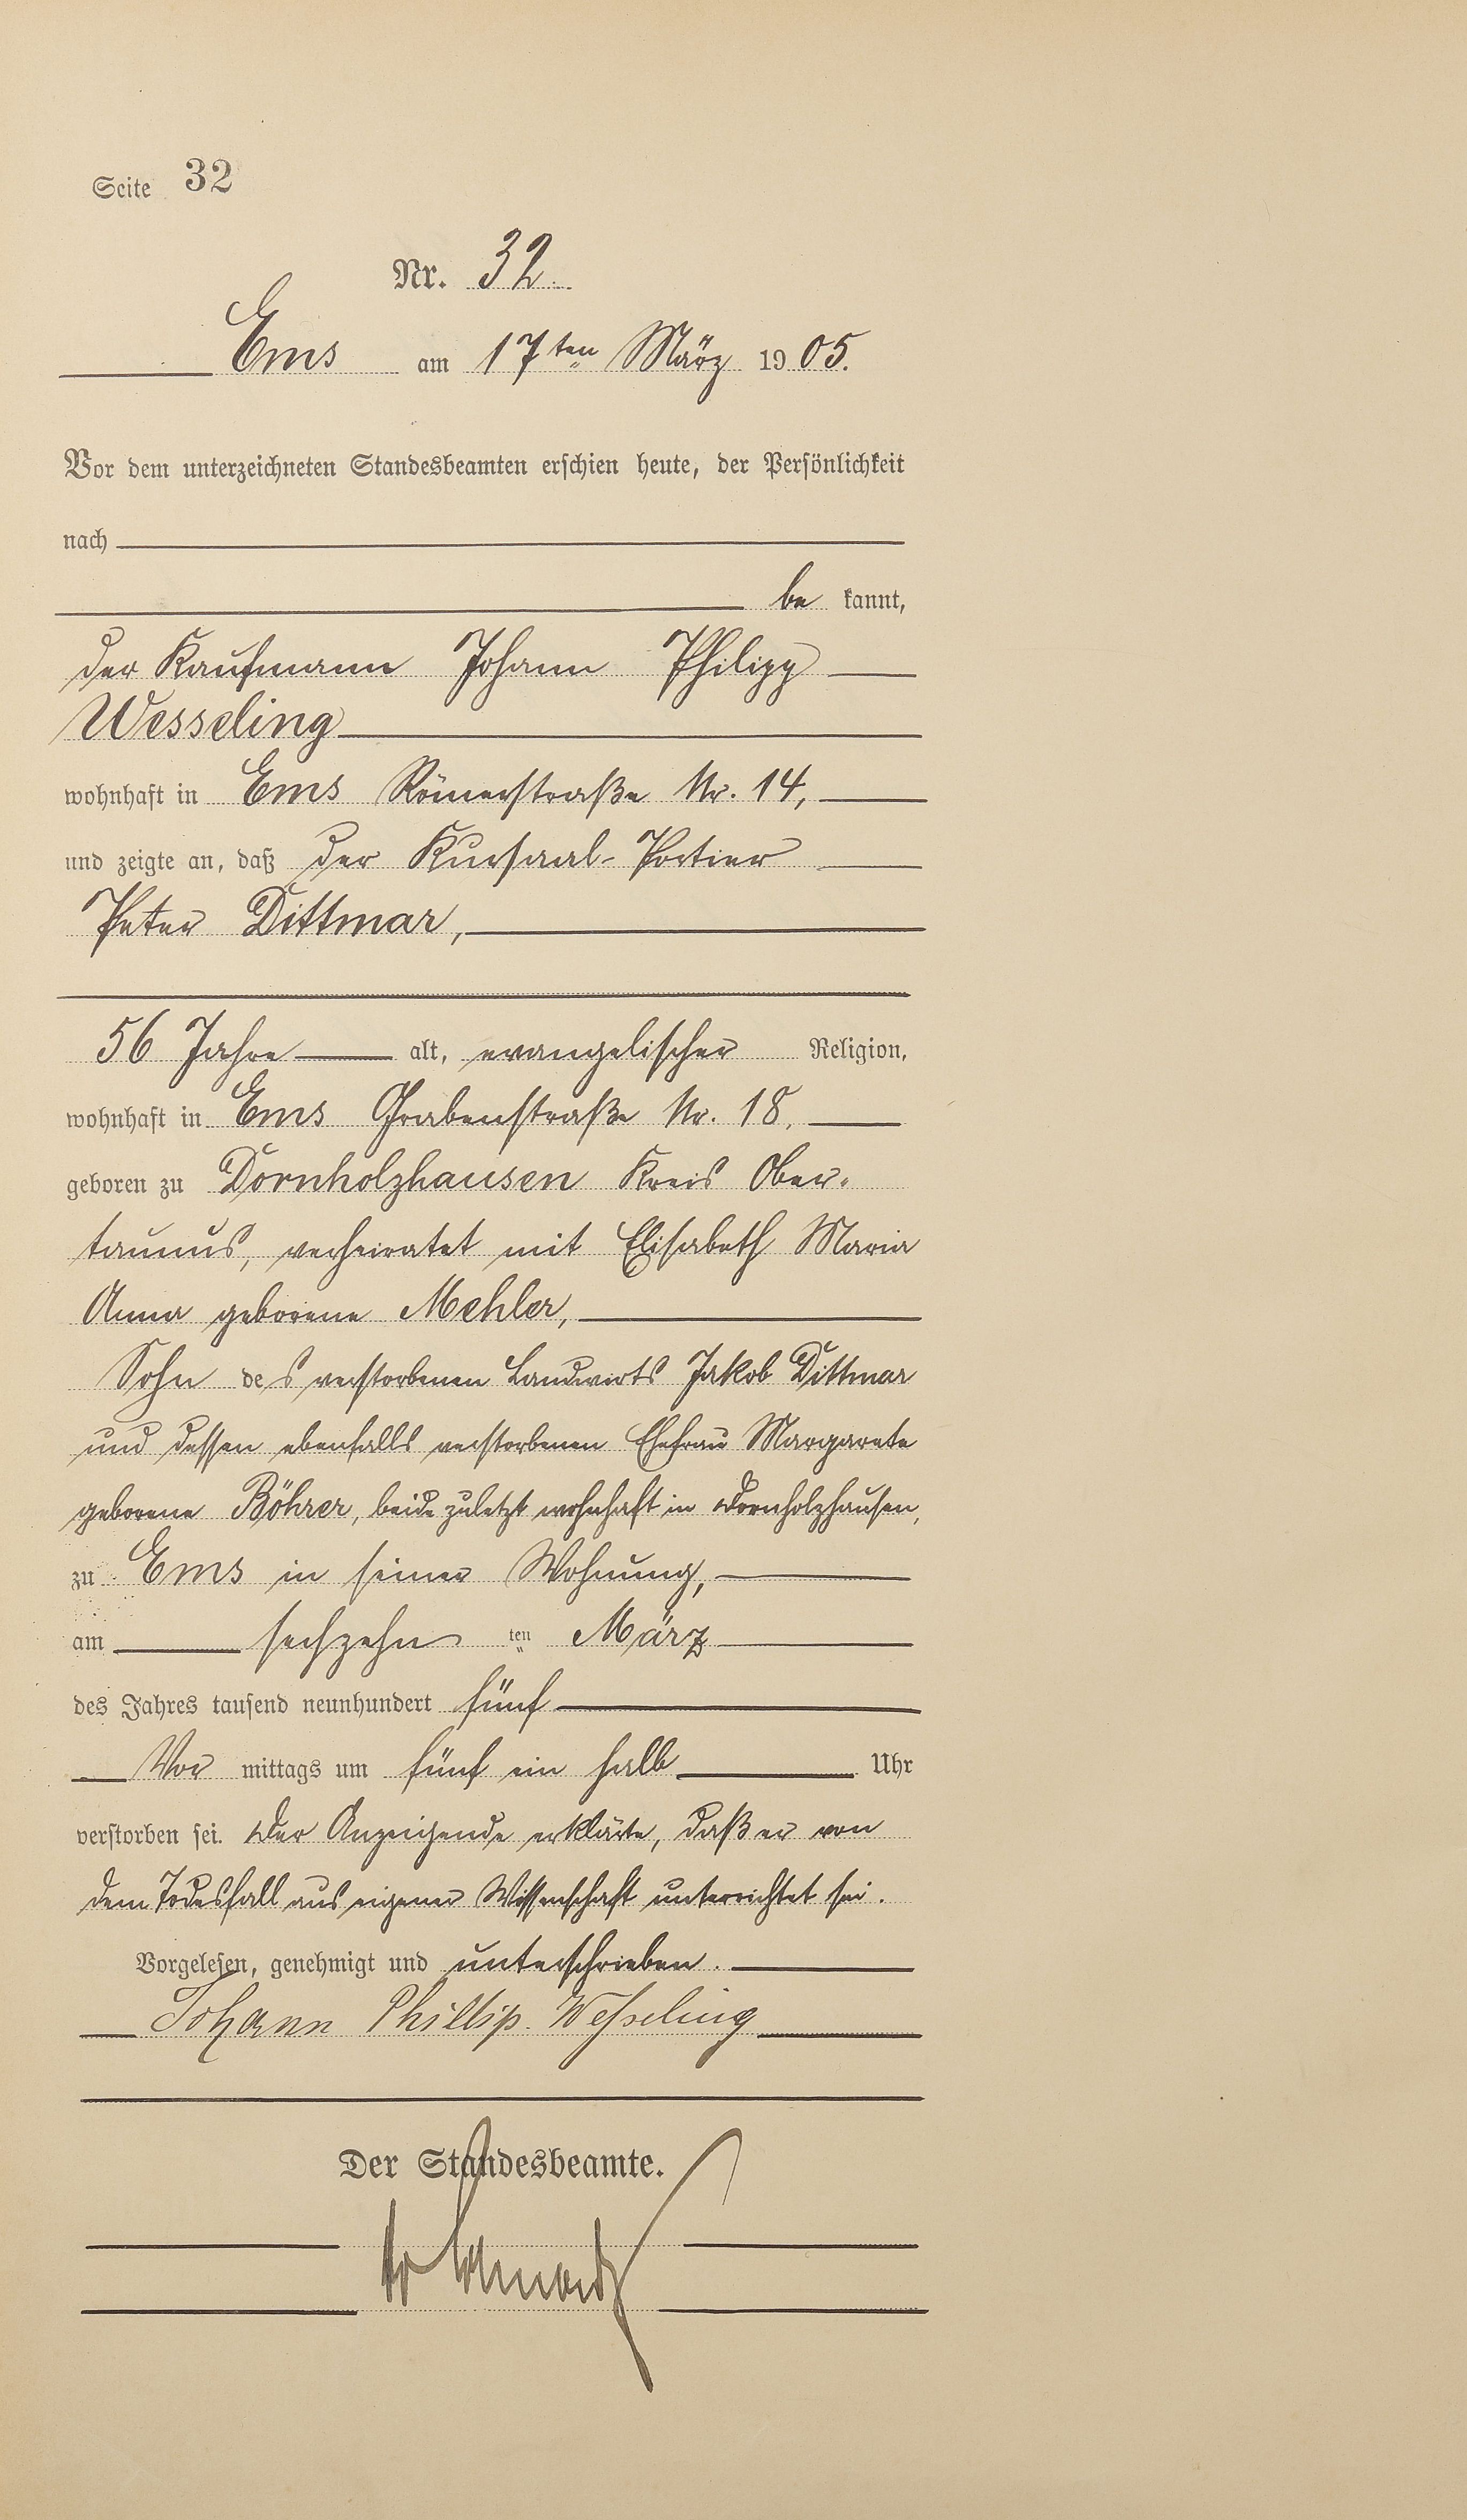 Seite 32
Nr. 32.
Ems am 17ten März 1905.
Vor dem unterzeichneten Standesbeamten erschien heute, der Persönlichkeit
nach
be kannt,
der Kaufmann Johann Philipp
Wesseling
wohnhaft in Ems Römerstraße Nr. 14,
und zeigte an, daß der Kursaal-Portier
Peter Dittmar,
56 Jahre alt, evangelischer Religion,
wohnhaft in Ems Grabenstraße Nr. 18,
geboren zu Dornholzhausen Kreis Ober-
taunus, verheiratet mit Elisabeth Maria
Anna geborene Mehler,
Sohn des verstorbenen Landwirts Jakob Dittmar
und dessen ebenfalls verstorbenen Ehefrau Margarete
geborene Böhrer, beide zuletzt wohnhaft in Dornholzhausen,
zu Ems in seiner Wohnung,
am sechzehn ten März
des Jahres tausend neunhundert fünf
Vor mittags um fünf ein halb Uhr
verstorben sei. Der Anzeigende erklärte, daß er von
dem Todesfall aus eigener Wissenschaft unterrichtet sei.
Vorgelesen, genehmigt und unterschrieben.
Johann Phillip Wesseling
Der Standesbeamte.